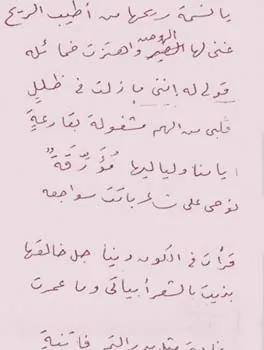 يا لنسمة ريحها من أطيب الريح
غنى لها الطير واهتزت خمائله
قولي له إنني ما زلت في ظلل
قلبي من الهم مشغولة بقارعةٍ
أيامنا ولياليها مُؤَرِّقَةٌ
نوحي على شاعر باتت سواجعه
قرأت في الكون دينا جل خالقها
بنيت بالشعر أبياتي وما عمرت